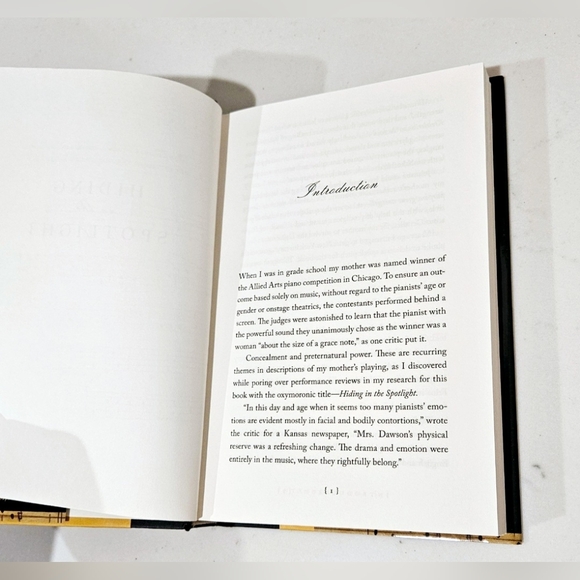 Introduction
When I was in grade school my mother was named winner of
the Allied Arts piano competition in Chicago. To ensure an out-
come based solely on music, without regard to the pianists' age or
gender or onstage theatrics, the contestants performed behind a
screen. The judges were astonished to learn that the pianist with
the powerful sound they unanimously chose as the winner was a
woman "about the size of a grace note," as one critic put it.
Concealment and preternatural power. These are recurring
themes in descriptions of my mother's playing, as I discovered
while poring over performance reviews in my research for this
book with the oxymoronic title—Hiding in the Spotlight.
"In this day and age when it seems too many pianists' emo-
tions are evident mostly in facial and bodily contortions," wrote
the critic for a Kansas newspaper, "Mrs. Dawson's physical
reserve was a refreshing change. The drama and emotion were
entirely in the music, where they rightfully belong."
[ 1 ]